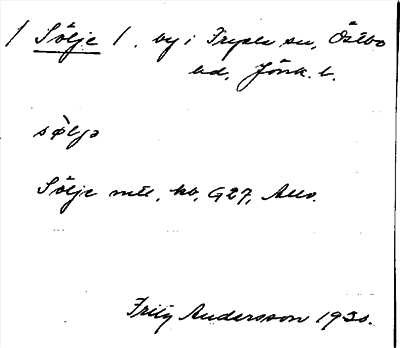 / Sölje /, by i Fryele sn, Östbo
hd, Jönk. l.
sø̀ljə
Sölje mtl, kb, G27, Allv.
Fritz Andersson 1930.